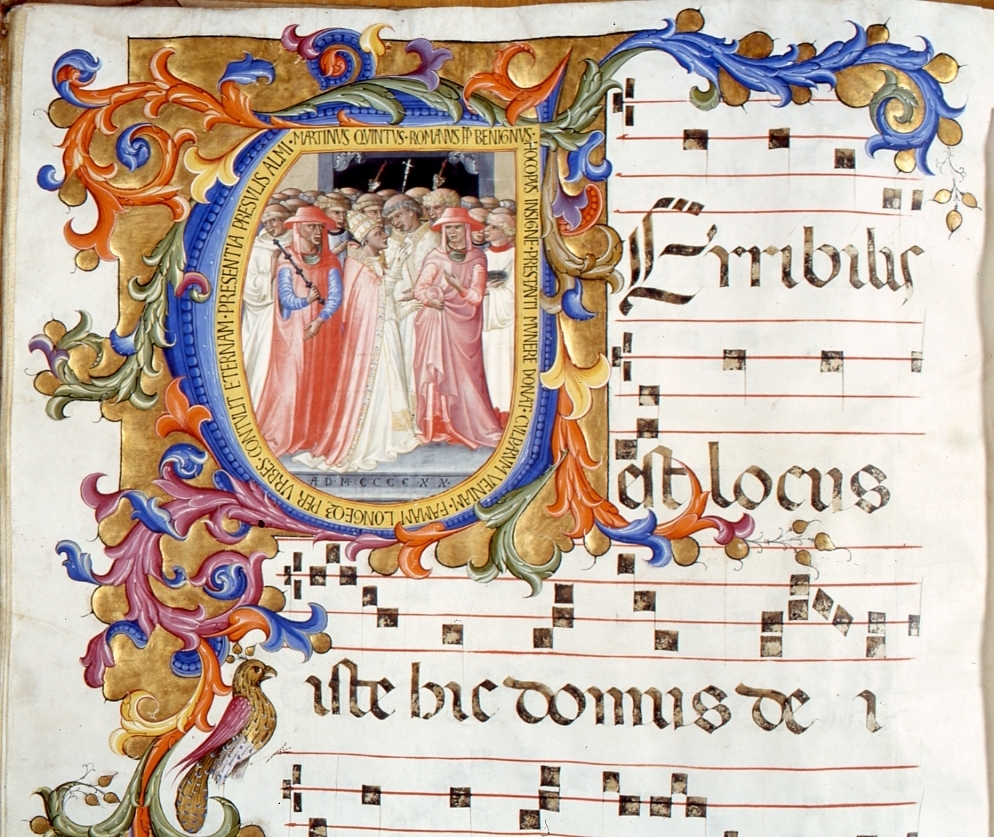 MARTINVS QVINTVS·ROMANVS PP BENIGNVS·
HOC OPVS INSIGNE·PRESTANTI MVNERE DONAT·CVLPARVM VENIAM·FAMAM LONGEQZ PER VRBES·CONTVLIT ETERNAM·PRESENTIA PRESVLIS ALMI·
A D M C C C C X X
Erribilis
est locus
iste hic domus de i